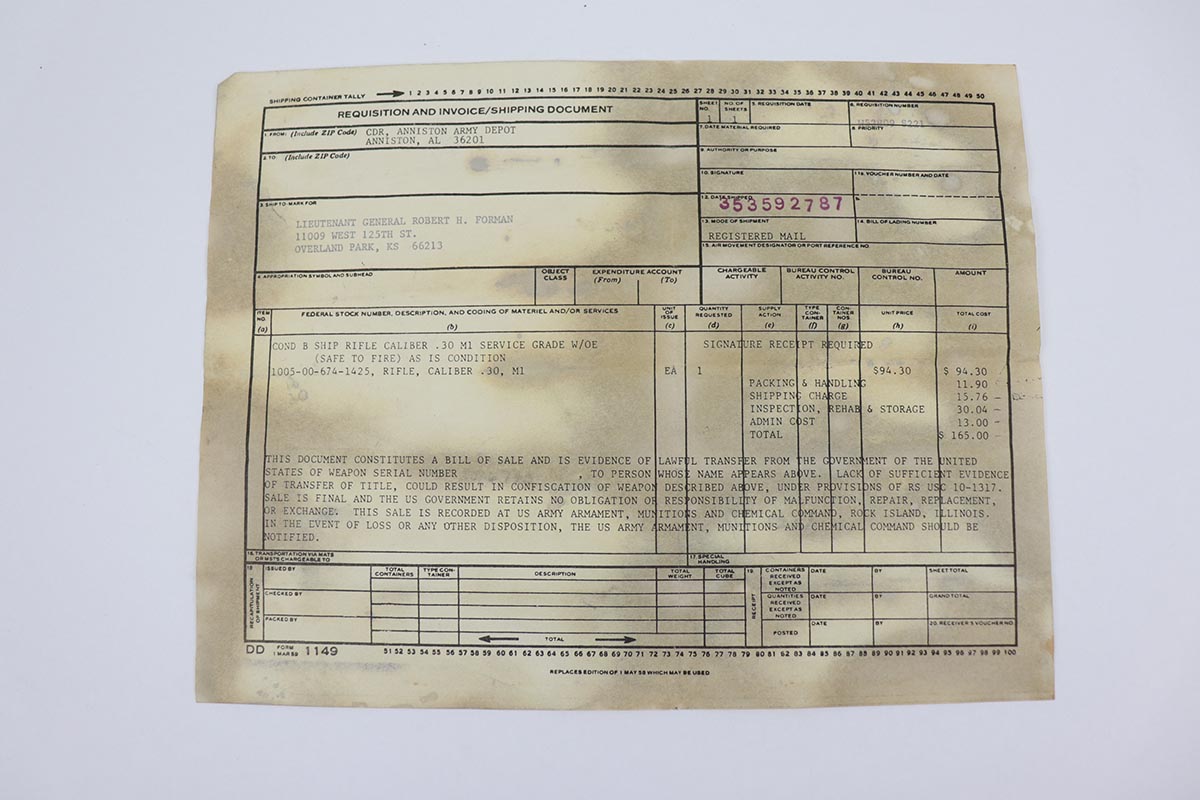 SHIPPING CONTAINER TALLY → 1 2 3 4 5 6 7 8 9 10 11 12 13 14 15 16 17 18 19 20 21 22 23 24 25 26 27 28 29 30 31 32 33 34 35 36 37 38 39 40 41 42 43 44 45 46 47 48 49 50
REQUISITION AND INVOICE/SHIPPING DOCUMENT
SHEET NO.
1
NO. OF SHEETS
1
5. REQUISITION DATE
6. REQUISITION NUMBER
1. FROM: (Include ZIP Code) CDR, ANNISTON ARMY DEPOT
ANNISTON, AL 36201
7. DATE MATERIAL REQUIRED
8. PRIORITY
2. TO: (Include ZIP Code)
9. AUTHORITY OR PURPOSE
10. SIGNATURE
11a. VOUCHER NUMBER AND DATE
3. SHIP TO-MARK FOR
LIEUTENANT GENERAL ROBERT H. FORMAN
11009 WEST 125TH ST.
OVERLAND PARK, KS 66213
12. DATE SHIPPED
353592787
b.
13. MODE OF SHIPMENT
REGISTERED MAIL
14. BILL OF LADING NUMBER
15. AIR MOVEMENT DESIGNATOR OR PORT REFERENCE NO.
4. APPROPRIATION SYMBOL AND SUBHEAD
OBJECT CLASS
EXPENDITURE ACCOUNT
(From) (To)
CHARGEABLE ACTIVITY
BUREAU CONTROL ACTIVITY NO.
BUREAU CONTROL NO.
AMOUNT
ITEM NO. (a)
FEDERAL STOCK NUMBER, DESCRIPTION, AND CODING OF MATERIEL AND/OR SERVICES (b)
UNIT OF ISSUE (c)
QUANTITY REQUESTED (d)
SUPPLY ACTION (e)
TYPE CON-TAINER (f)
CON-TAINER NOS. (g)
UNIT PRICE (h)
TOTAL COST (i)
COND B SHIP RIFLE CALIBER .30 M1 SERVICE GRADE W/OE SIGNATURE RECEIPT REQUIRED
(SAFE TO FIRE) AS IS CONDITION
1005-00-674-1425, RIFLE, CALIBER .30, M1 EA 1 $94.30 $ 94.30
PACKING & HANDLING 11.90
SHIPPING CHARGE 15.76 -
INSPECTION, REHAB & STORAGE 30.04 -
ADMIN COST 13.00 -
TOTAL $ 165.00 -
THIS DOCUMENT CONSTITUTES A BILL OF SALE AND IS EVIDENCE OF LAWFUL TRANSFER FROM THE GOVERNMENT OF THE UNITED
STATES OF WEAPON SERIAL NUMBER , TO PERSON WHOSE NAME APPEARS ABOVE. LACK OF SUFFICIENT EVIDENCE
OF TRANSFER OF TITLE, COULD RESULT IN CONFISCATION OF WEAPON DESCRIBED ABOVE, UNDER PROVISIONS OF RS USC 10-1317.
SALE IS FINAL AND THE US GOVERNMENT RETAINS NO OBLIGATION OR RESPONSIBILITY OF MALFUNCTION, REPAIR, REPLACEMENT,
OR EXCHANGE. THIS SALE IS RECORDED AT US ARMY ARMAMENT, MUNITIONS AND CHEMICAL COMMAND, ROCK ISLAND, ILLINOIS.
IN THE EVENT OF LOSS OR ANY OTHER DISPOSITION, THE US ARMY ARMAMENT, MUNITIONS AND CHEMICAL COMMAND SHOULD BE
NOTIFIED.
16. TRANSPORTATION VIA MATS OR MSTS CHARGEABLE TO
17. SPECIAL HANDLING
18
RECAPITULATION OF SHIPMENT
ISSUED BY
CHECKED BY
PACKED BY
TOTAL CONTAINERS
TYPE CON-TAINER
DESCRIPTION
TOTAL WEIGHT
TOTAL CUBE
← TOTAL →
19.
RECEIPT
CONTAINERS RECEIVED EXCEPT AS NOTED
DATE
BY
SHEET TOTAL
QUANTITIES RECEIVED EXCEPT AS NOTED
DATE
BY
GRAND TOTAL
POSTED
DATE
BY
20. RECEIVER'S VOUCHER NO.
DD FORM 1 MAR 59 1149
51 52 53 54 55 56 57 58 59 60 61 62 63 64 65 66 67 68 69 70 71 72 73 74 75 76 77 78 79 80 81 82 83 84 85 86 87 88 89 90 91 92 93 94 95 96 97 98 99 100
REPLACES EDITION OF 1 MAY 58 WHICH MAY BE USED